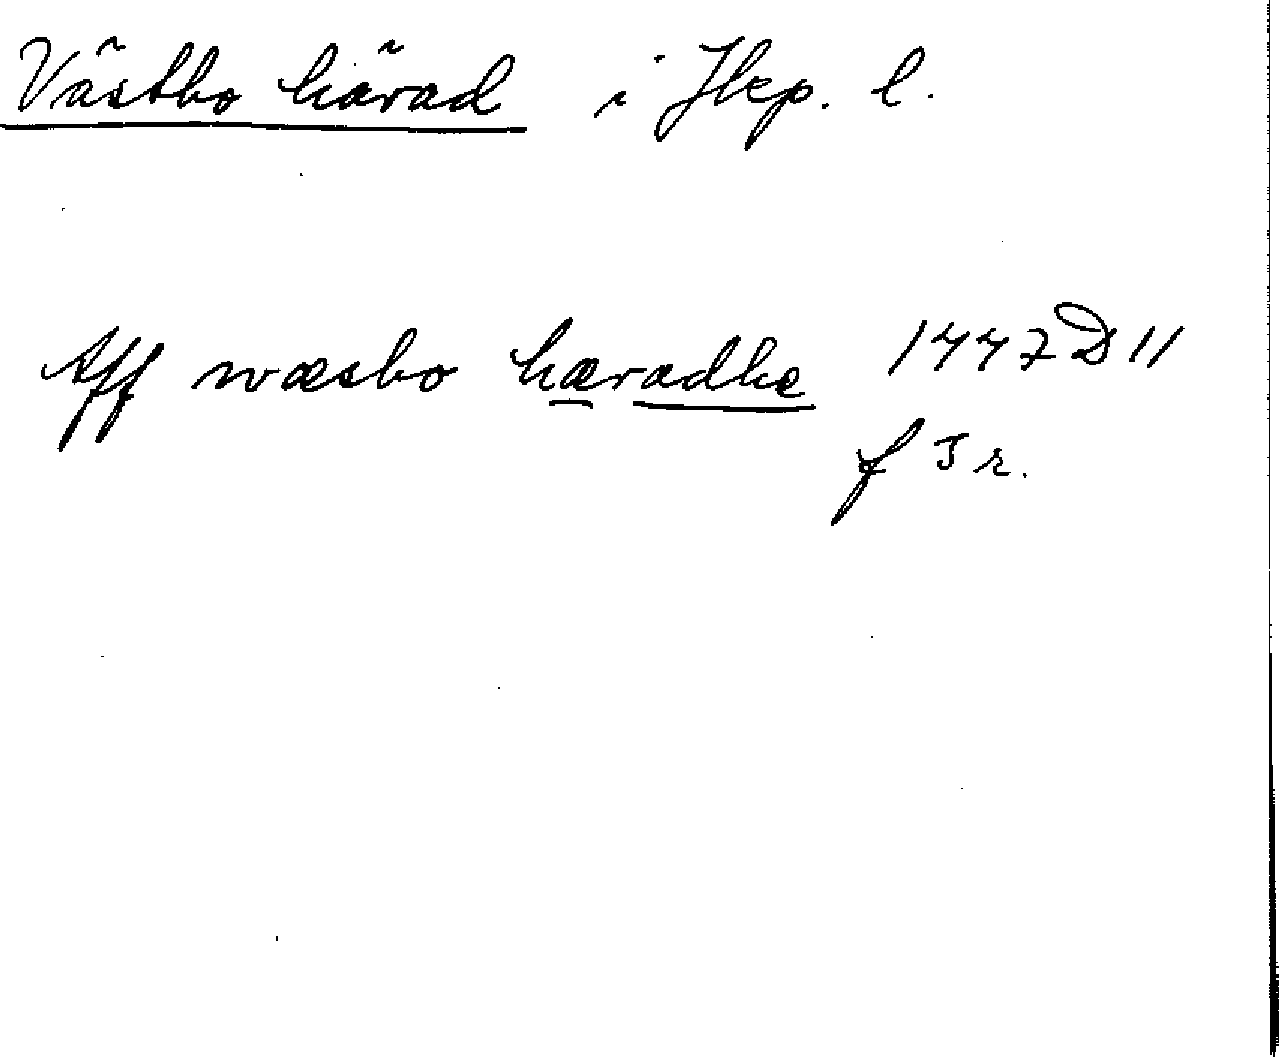 Västbo härad i Jkp. l.
Aff wæsbo hæradhe 1447 D 11
f 5 r.